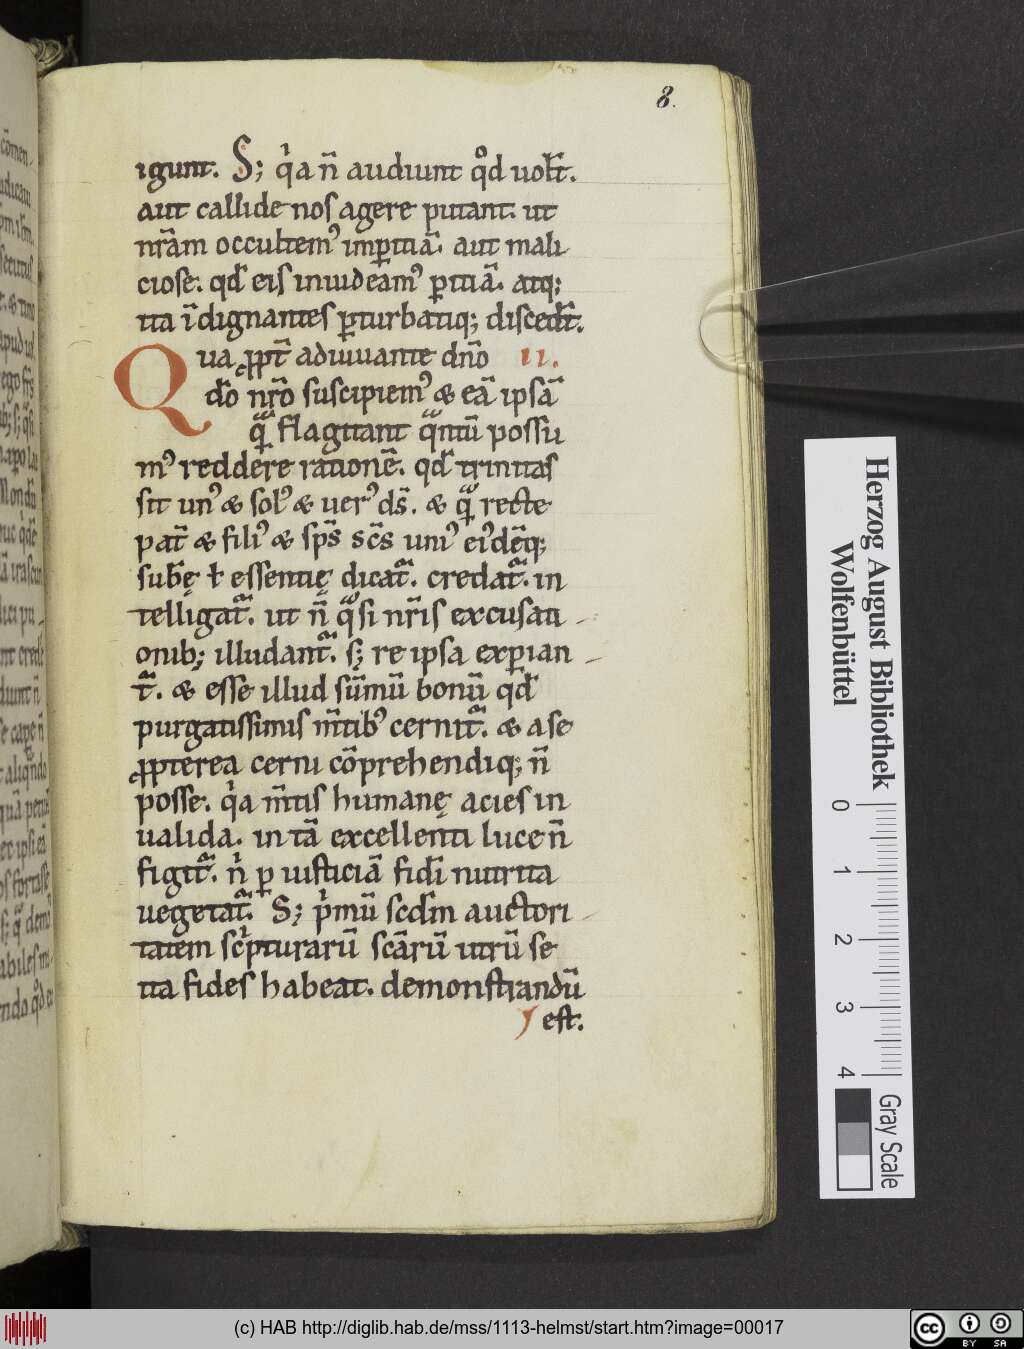 8.
igunt. S; qͥa n̄ audiunt qͦd uolt̄.
aut callide nos agere putant. ut
nr̄am occultem᷒ imꝑitiā. aut mali
ciose. qd̄ eis inuideam᷒ ꝑitiā. atq;
ita īdignantes ꝑturbatiq; discedt̄.
Qua ꝓpt̄ adiuuante dn̄o II.
dō nr̄o suscipiem᷒ & eā ipsā
qᷓ flagitant qᷓntū possu
m᷒ reddere rationē. qd̄ trinitas
sit un᷒ & sol᷒ & uer᷒ ds̄. & qᷓ recte
pat̄ & fili᷒ & sp̄s sc̄s uni᷒ ei᷒dēq;
sub̄ę ł essentię dicatᷓ. credatᷓ. in
telligatᷓ. ut n̄ qᷓsi nr̄is excusati
onib; illudantᷓ. s; re ipsa exꝑian
tᷓ. & esse illud sūmū bonū qd̄
purgatissimis m̄tib᷒ cernitᷓ. & a se
ꝓpterea cerni cōprehendiq; n̄
posse. qͥa m̄tis humanę acies in
ualida. in tā excellenti luce n̄
figitᷓ. nͥ ꝑ iusticiā fidi nutrita
uegetatᷓ. S; pͥmū scdm̄ auctori
tatem scͥpturarū scārū utrū se
ita fides habeat. demonstrandū
est.
Herzog August Bibliothek
Wolfenbüttel
0 1 2 3 4
Gray Scale
(c) HAB http://diglib.hab.de/mss/1113-helmst/start.htm?image=00017
cc BY SA